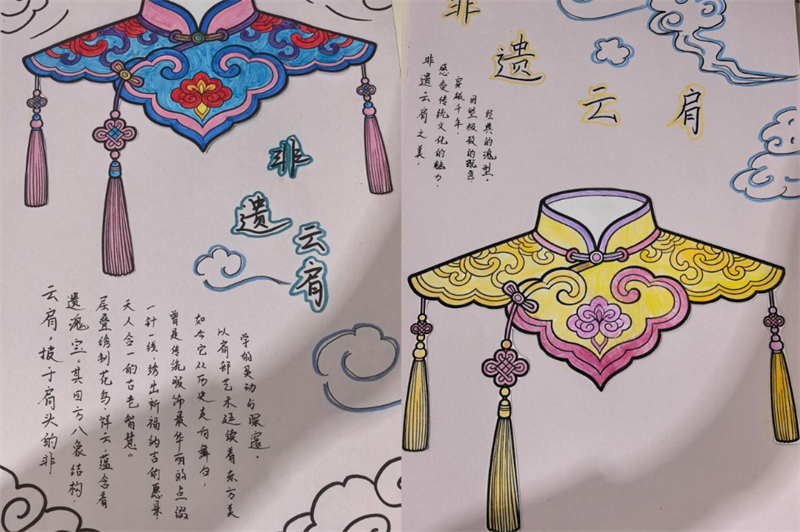 非遗云肩
云肩，披于肩头的非
遗瑰宝，其四方八象结构，
层叠绣制花鸟、祥云，蕴含着
天人合一的古老智慧。
一针一线，绣出祈福纳吉的愿景，
曾是传统服饰最华丽的点缀
如今它从历史走向舞台，
以肩部艺术延续着东方美
学的灵动与深邃。
非遗云肩
非遗云肩之美，
感受传统文化的魅力，
穿越千年，
极致的配色，
经典的造型，